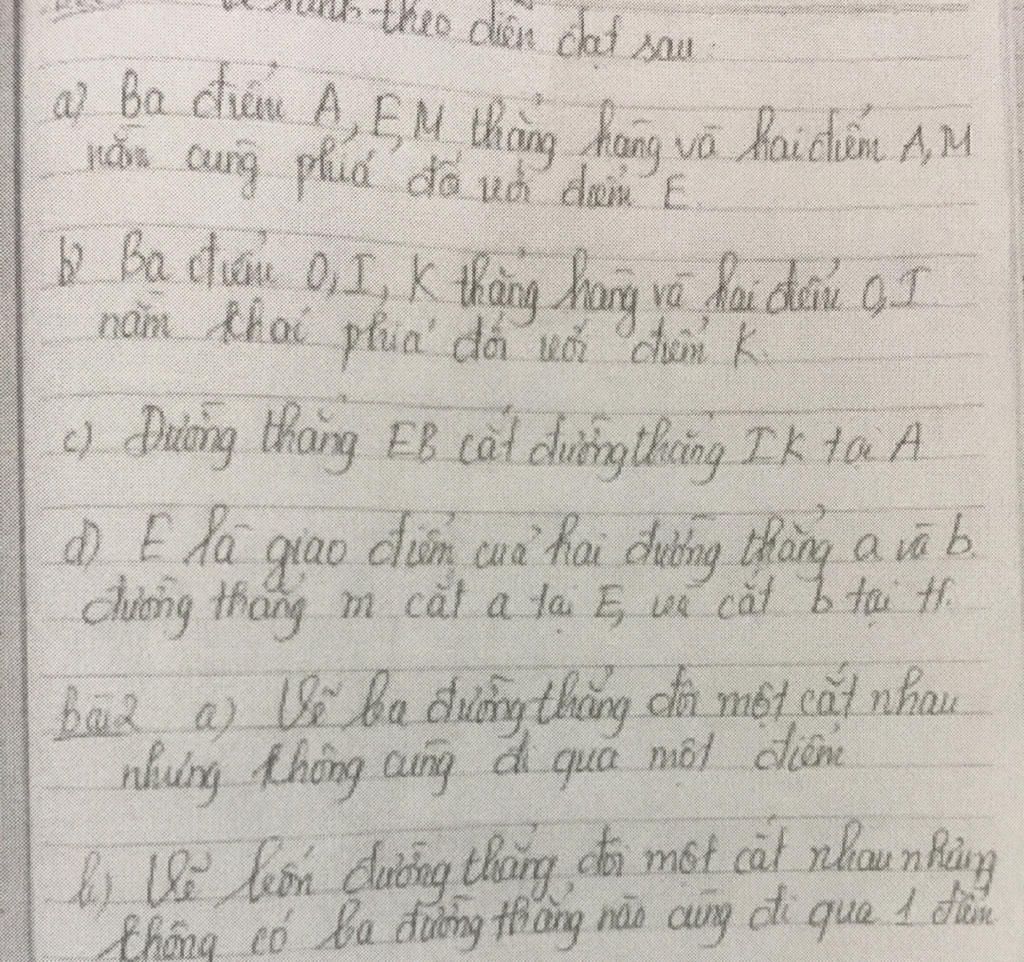 theo diễn đạt sau:
a) Ba điểm A, E, M thẳng hàng và hai điểm A, M
nằm cùng phía đối với điểm E.
b) Ba điểm O, I, K thẳng hàng và hai điểm O, I
nằm khác phía đối với điểm K.
c) Đường thẳng EB cắt đường thẳng IK tại A
d) E là giao điểm của hai đường thẳng a và b.
đường thẳng m cắt a tại E, và cắt b tại H.
bài 2 a) Vẽ ba đường thẳng đôi một cắt nhau
nhưng không cùng đi qua một điểm
b) Vẽ bốn đường thẳng đôi một cắt nhau nhưng
không có ba đường thẳng nào cùng đi qua 1 điểm